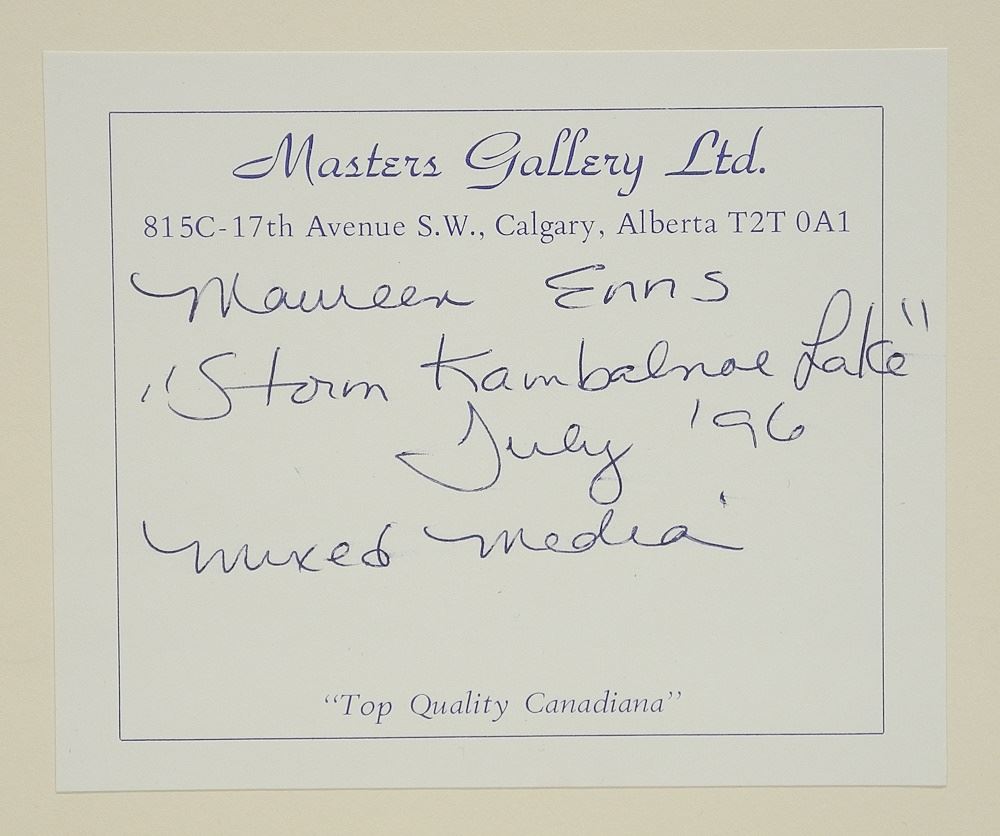 Masters Gallery Ltd.
815C-17th Avenue S.W., Calgary, Alberta T2T 0A1
Maureen Enns
"Storm Kambalnoe Lake"
July '96
Mixed Media
“Top Quality Canadiana”